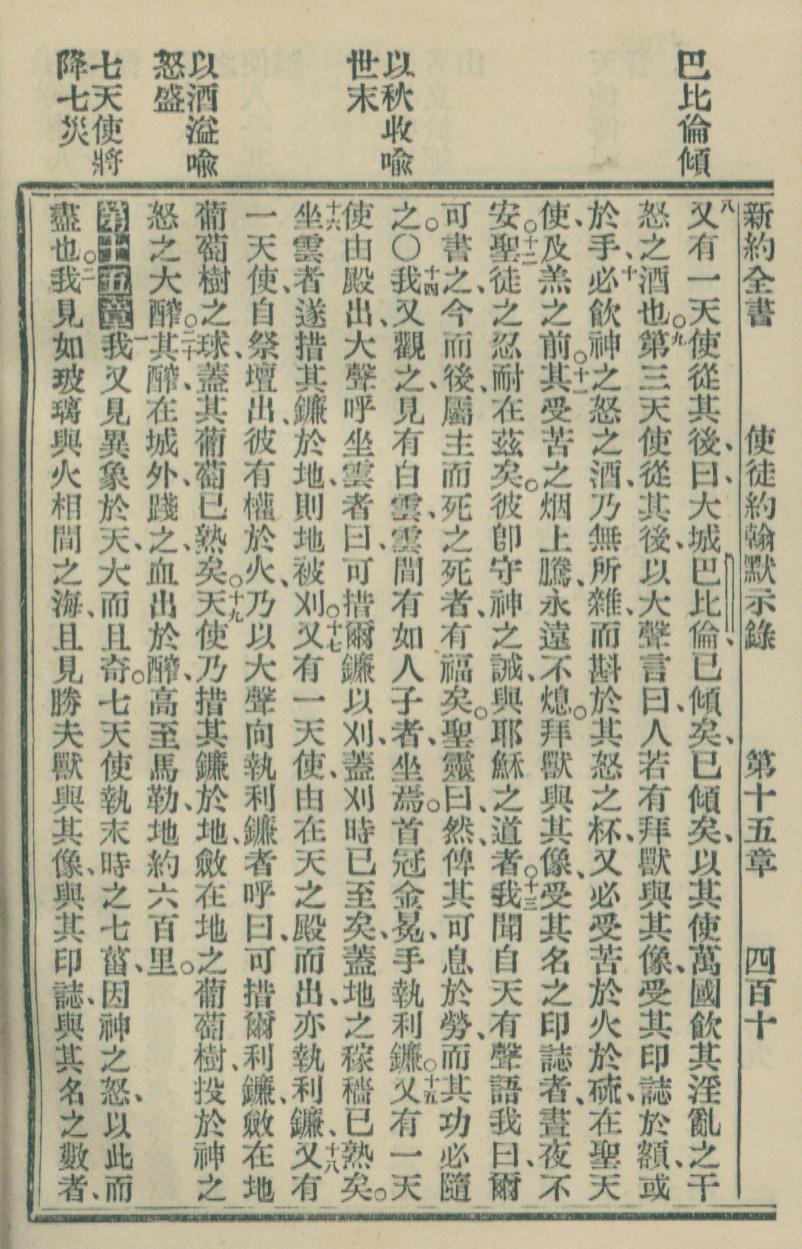 巴比倫傾
以秋收喩
世末
以酒溢喩
怒盛
七天使將
降七災
新約全書 使徒約翰默示錄 第十五章 四百十
八又有一天使從其後、曰、大城巴比倫、已傾矣、已傾矣、以其使萬國飲其淫亂之干
怒之酒也。九第三天使從其後、以大聲言曰、人若有拜獸與其像、受其印誌於額、或
於手、十必飲神之怒之酒、乃無所雜、而斟於其怒之杯、又必受苦於火於硫、在聖天
使、及羔之前。十一其受苦之烟上騰、永遠不熄。拜獸與其像、受其名之印誌者、晝夜不
安。十二聖徒之忍耐在茲矣。彼卽守神之誡、與耶穌之道者。十三我聞自天有聲語我曰、爾
可書之、今而後、屬主而死之死者有福矣。聖靈曰、然、俾其可息於勞、而其功必隨
之。〇十四我又觀之、見有白雲、雲間有如人子者、坐焉。首冠金冕、手執利鐮。十五又有一天
使由殿出、大聲呼坐雲者曰、可措爾鐮以刈、蓋刈時已至矣、蓋地之稼穡已熟矣。
十六坐雲者遂措其鐮於地、則地被刈。十七又有一天使、由在天之殿而出、亦執利鐮、十八又有
一天使、自祭壇出、彼有權於火、乃以大聲向執利鐮者呼曰、可措爾利鐮、斂在地
葡萄樹之球、蓋其葡萄已熟矣。十九天使乃措其鐮於地、斂在地之葡萄樹、投於神之
怒之大醡。二十其醡在城外、踐之、血出於醡、高至馬勒、地約六百里。
第十五章一我又見異象於天、大而且奇。七天使執末時之七菑、因神之怒、以此而
盡也。二我見如玻璃與火相間之海、且見勝夫獸與其像、與其印誌、與其名之數者、